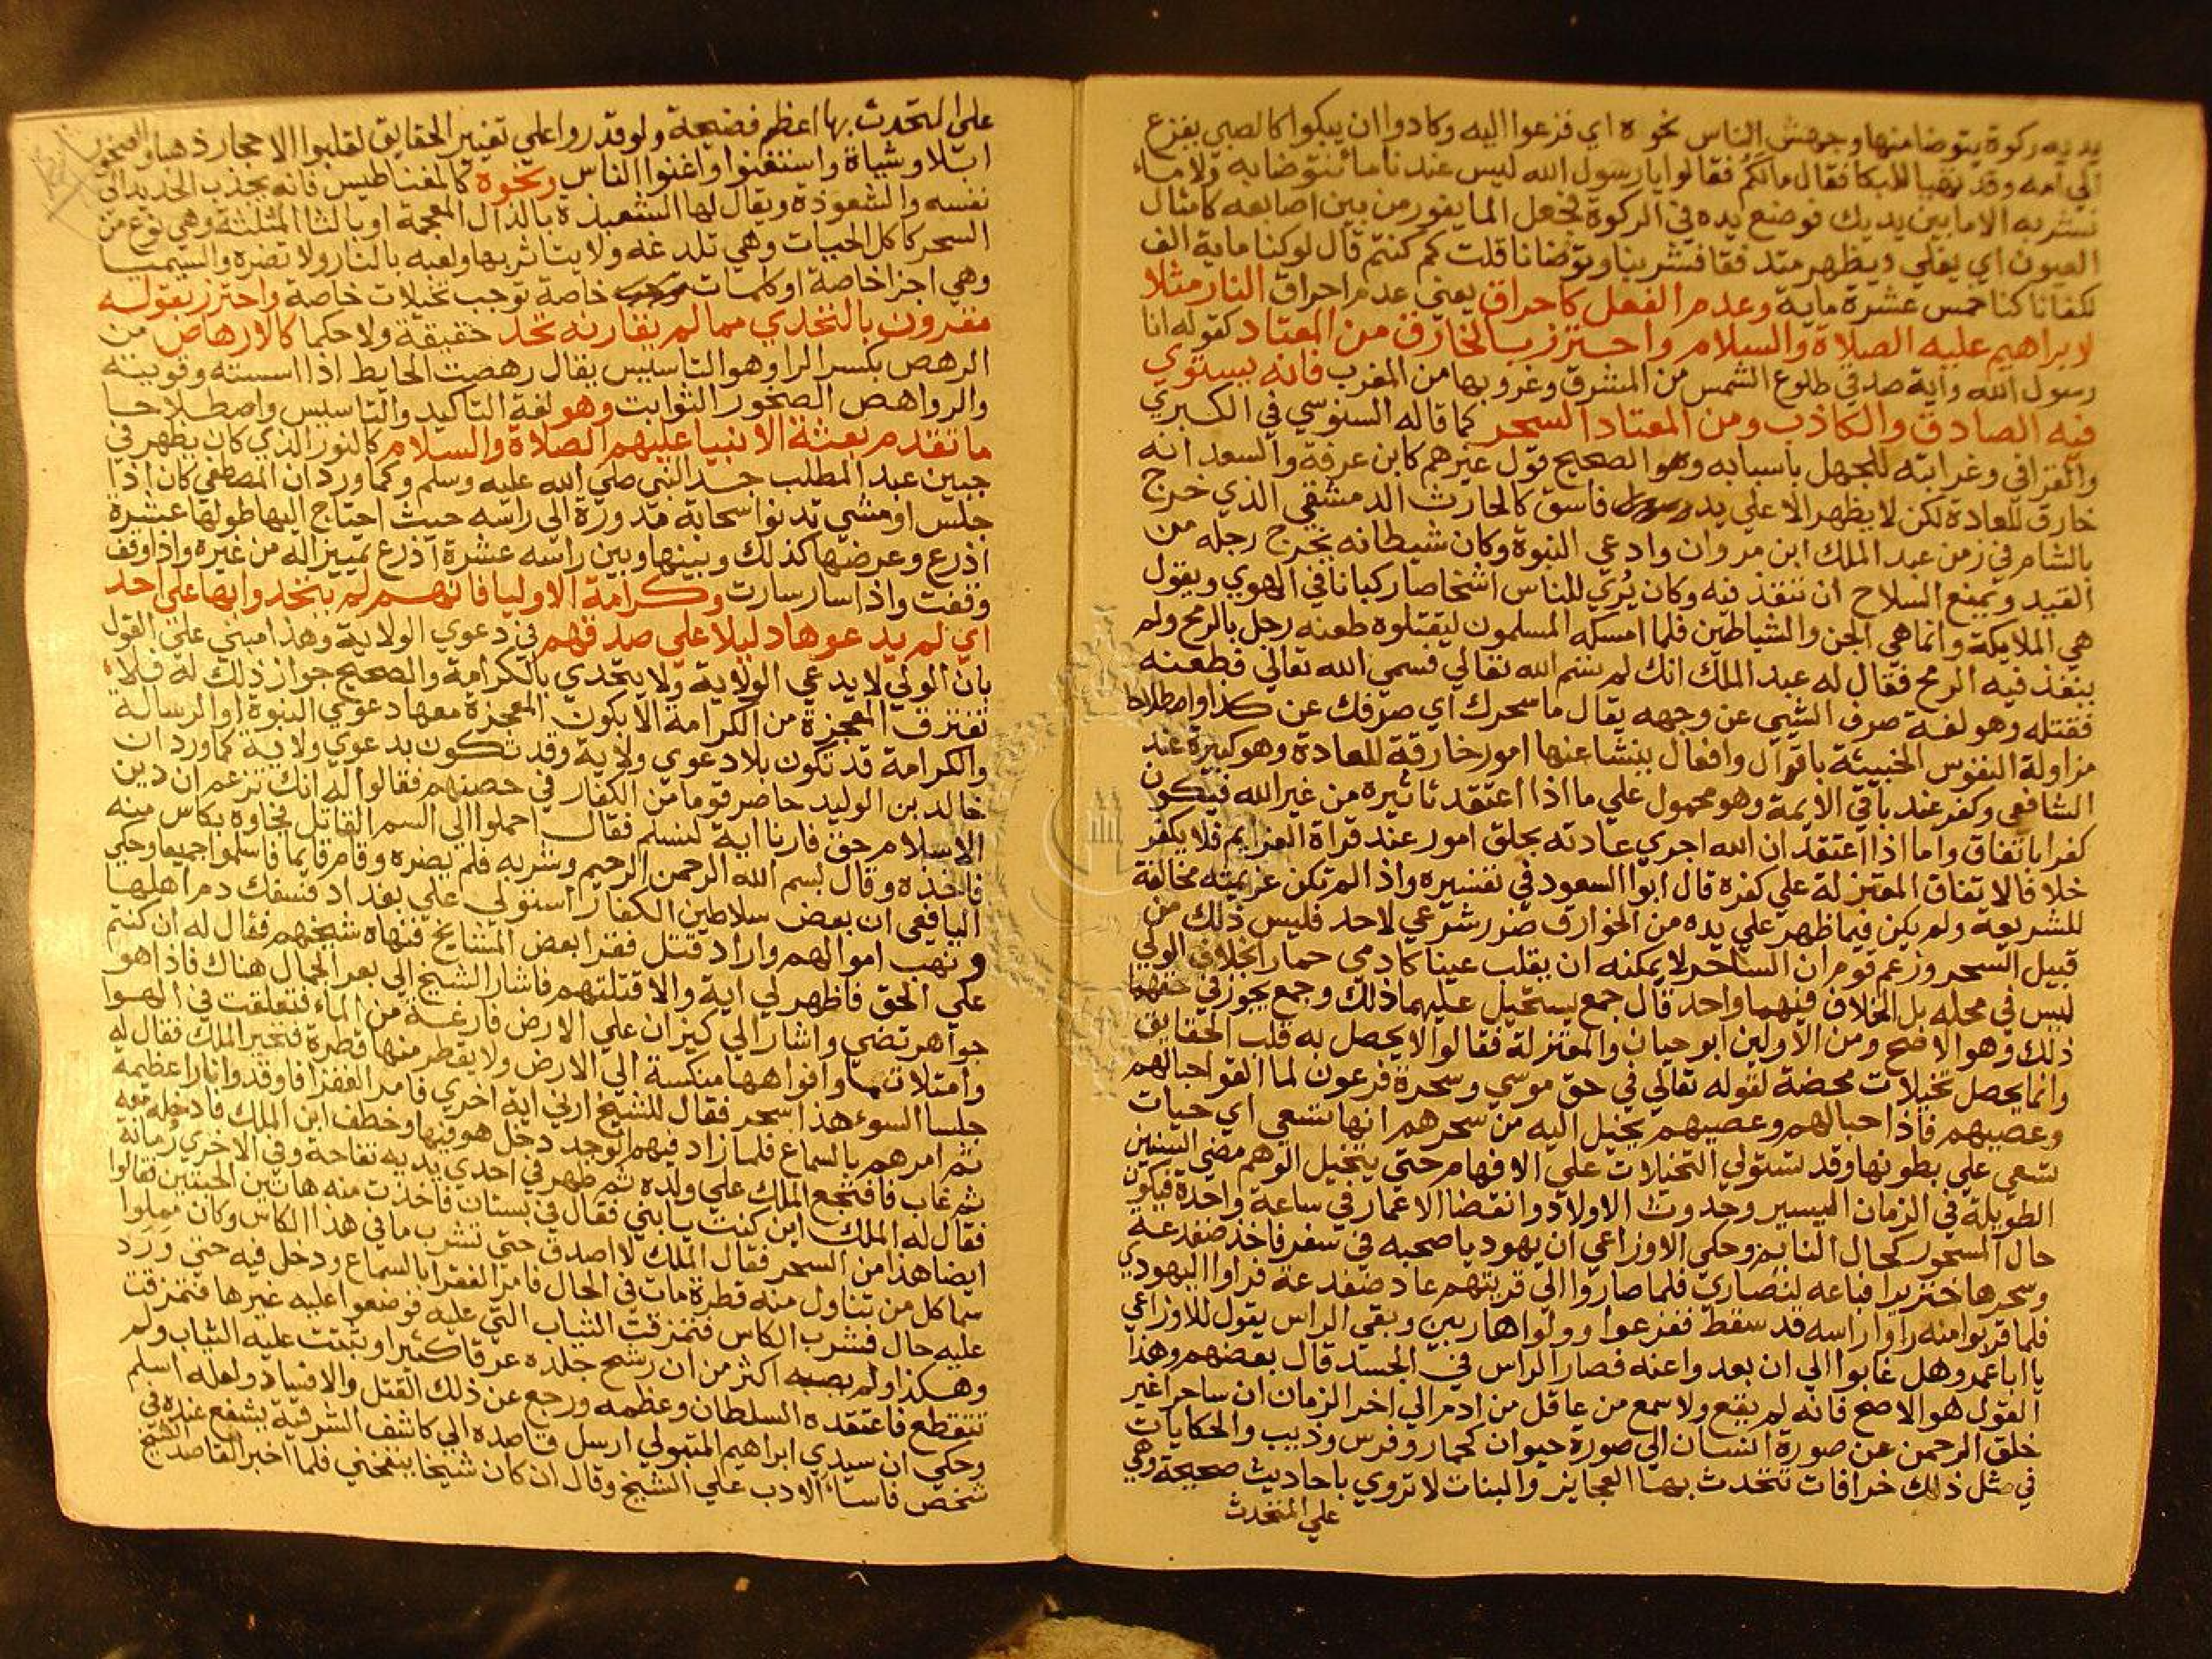 يديه ركوة يتوضا منها وجهش الناس نحوه اي فزعوا اليه وكادوا ان يبكوا كالصبي يفزع
الي امه وقد تهيا للبكا فقال مالكم فقالوا يا رسول الله ليس عندنا ما نتوضا به ولا ماء
نشربه الا ما بين يديك فوضع يده في الركوة فجعل الما يفور من بين اصابعه كامثال
العيون اي يغلي ويظهر متدفقا فشربنا وتوضانا قلت كم كنتم قال لو كنا ماية الف
لكفانا كنا خمس عشرة ماية وعدم الفعل كاحراق يعني عدم احراق النار مثلا
لابراهيم عليه الصلاة والسلام واحترز بالخارق من المعتاد كقوله انا
رسول الله واية صدقي طلوع الشمس من المشرق وغروبها من المغرب فانه يستوي
فيه الصادق والكاذب ومن المعتاد السحر كما قاله السنوسي في الكبري
والقرافي وغرابته للجهل باسبابه وهو الصحيح قول غيرهم كابن عرفة والسعد انه
خارق للعادة لكن لا يظهر الا علي يد فاسق كالحارث الدمشقي الذي خرج
بالشام في زمن عبد الملك ابن مروان وادعي النبوة وكان شيطانه يخرج رجله من
القيد ويمنع السلاح ان تنفذ فيه وكان يُري للناس اشخاصا ركبانا في الهوي ويقول
هي الملايكة وانما هي الجن والشياطين فلما امسكه المسلمون ليقتلوه طعنه رجل بالرمح ولم
ينفذ فيه الرمح فقال له عبد الملك انك لم تسم الله تعالي فسمي الله تعالي فطعنه
فقتله وهو لغة صرف الشيي عن وجهه يقال ما سحرك اي صرفك عن كذا واصطلاحا
مزاولة النفوس الخبيثة باقوال وافعال ينشا عنها امور خارقة للعادة وهو كبيرة عند
الشافعي وكفر عند باقي الايمة وهو محمول علي ما اذا اعتقد تاثيره من غير الله فيكون
كفرا باتفاق واما اذا اعتقد ان الله اجري عادته بخلق امور عند قراة العزايم فلا يكفر
خلافا لاتفاق المعتزلة علي كفره قال ابوا السعود في تفسيره واذا لم تكن عزيمته مخالفة
للشريعة ولم يكن فيما ظهر علي يده من الخوارق ضرر شرعي لاحد فليس ذلك من
قبيل السحر وزعم قوم ان الساحر لا يمكنه ان يقلب عينا كادمي حمار بخلاف الولي
ليس في محله بل الخلاف فيهما واحد قال جمع يستحيل عليهما ذلك وجمع يجوز في حقهما
ذلك وهو الاصح ومن الاولين ابو حيان والمعتزلة فقالوا لا يحصل به قلب الحقايق
وانما يحصل تخيلات محضة لقوله تعالي في حق موسي وسحرة فرعون لما القوا حبالهم
وعصيهم فاذا حبالهم وعصيهم يخيل اليه من سحرهم انها تسعي اي حيات
تسعي علي بطونها وقد تستولي التخيلات علي الافهام حتي يتخيل الوهم مضي السنين
الطويلة في الزمان اليسير وحدوث الاولاد وانقضا الاعمار في ساعة واحدة فيكون
حال المسحور كحال النايم وحكي الاوزاعي ان يهوديا صحبه في سفر فاخذ ضفدعة
وسحرها خنزيرا فباعه لنصاري فلما صاروا الي قريتهم عاد ضفدعة فراوا اليهودي
فلما قربوا منه راوا راسه قد سقط ففزعوا وولوا هاربين وبقي الراس يقول للاوزاعي
يا ابا عمرو هل غابوا الي ان بعدوا عنه فصار الراس في الجسد قال بعضهم وهذا
القول هو الاصح فانه لم يقع ولا سمع من عاقل من ادم الي اخر الزمان ان ساحرا غير
خلق الرحمن عن صورة انسان الي صورة حيوان كحمار وفرس وذيب والحكايات
في مثل ذلك خرافات تتحدث بها العجايز والبنات لا تروي باحاديث صحيحة وهي
علي المتحدث
علي المتحدث بها اعظم فضيحة ولو قدروا علي تغيير الحقايق لقلبوا الاحجار ذهبا والصخور
ابلا وشياة واستغنوا واغنوا الناس ونحوه كالمغناطيس فانه يجذب الحديد الي
نفسه والشعوذة ويقال لها الشعبذة بالذال المعجمة او بالثا المثلثة وهي نوع من
السحر كاكل الحيات وهي تلدغه ولا يتاثر بها ولعبه بالنار ولا تضره والسيميا
وهي اجزا خاصة او كلمات خاصة توجب تخيلات خاصة واحترز بقوله
مقرون بالتحدي مما لم يقارنه تحد حقيقة ولا حكما كالارهاص من
الرهص بكسر الرا وهو التاسيس يقال رهصت الحايط اذا اسسته وقويته
والرواهص الصخور الثوابت وهو لغة التاكيد والتاسيس واصطلاحا
ما تقدم بعثة الانبيا عليهم الصلاة والسلام كالنور الذي كان يظهر في
جبين عبد المطلب جد النبي صلي الله عليه وسلم وكما ورد ان المصطفي كان اذا
جلس او مشي تدنوا سحابة مدورة الي راسه حيث احتاج اليها طولها عشرة
اذرع وعرضها كذلك وبينها وبين راسه عشرة اذرع تمييزا له من غيره واذا وقف
وقفت واذا سار سارت وكرامة الاوليا فانهم لم يتحدوا بها علي احد
اي لم يدعوها دليلا علي صدقهم في دعوي الولاية وهذا مبني علي القول
بان الولي لا يدعي الولاية ولا يتحدي بالكرامة والصحيح جواز ذلك له فلا
تفترق المعجزة من الكرامة الا بكون المعجزة معها دعوي النبوة او الرسالة
والكرامة قد تكون بلا دعوي ولاية وقد تكون بدعوي ولاية كما ورد ان
خالد بن الوليد حاصر قوما من الكفار في حصنهم فقالوا له انك تزعم ان دين
الاسلام حق فارنا اية لنسلم فقال احملوا الي السم القاتل فجاوه بكاس منه
فاخذه وقال بسم الله الرحمن الرحيم وشربه فلم يضره وقام قايما فاسلموا جميعا وحكي
اليافعي ان بعض سلاطين الكفار استولي علي بغداد فسفك دم اهلها
ونهب اموالهم واراد قتل فقرا بعض المشايخ فنهاه شيخهم فقال له ان كنتم
علي الحق فاظهر لي اية والا قتلتهم فاشار الشيخ الي بعر الجمال هناك فاذا هو
جواهر تضي واشار الي كيزان علي الارض فارغة من الماء فتعلقت في الهوا
وامتلات ما وافواهها منكسة الي الارض ولا يقطر منها قطرة فتحير الملك فقال له
جلسا السوء هذا سحر فقال للشيخ ارني اية اخري فامر الفقرا فاوقدوا نارا عظيمة
ثم امرهم بالسماع فلما زاد فيهم الوجد دخل هو فيها وخطف ابن الملك فادخله معه
ثم غاب فافتجع الملك علي ولده ثم ظهر في احدي يديه تفاحة وفي الاخري رمانة
فقال له الملك اين كنت يا بني فقال في بستان فاخذت منه هاتين الحبتين فقالوا
ايضا هذا من السحر فقال الملك لا اصدق حتي تشرب ما في هذا الكاس وكان مملوا
سما كل من تناول منه قطرة مات في الحال فامر الفقرا بالسماع ودخل فيه حتي ورد
عليه حال فشرب الكاس فتمزقت الثياب التي عليه فوضعوا عليه غيرها فتمزقت
وهكذا ولم يصبه اكثر من ان رشح جلده عرقا كثيرا وثبتت عليه الثياب ولم
تتقطع فاعتقده السلطان وعظمه ورجع عن ذلك القتل والافساد ولعله اسلم
وحكي ان سيدي ابراهيم المتبولي ارسل قاصده الي كاشف الشرقية يشفع عنده في
شخص فاساء الادب علي الشيخ وقال ان كان شيخا ينفخني فلما اخبر القاصد الشيخ